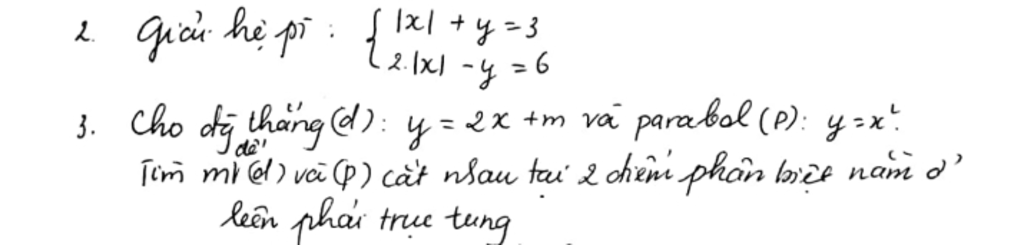 2. Giải hệ pt : { |x| + y = 3
2.|x| - y = 6
3. Cho đg thẳng (d): y = 2x + m và parabol (P): y = x².
Tìm m để (d) và (P) cắt nhau tại 2 điểm phân biệt nằm ở
bên phải trục tung